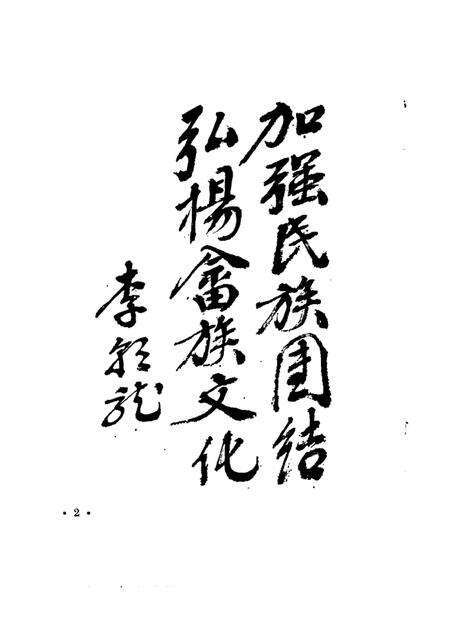 加强民族团结
弘揚畲族文化
李
· 2 ·